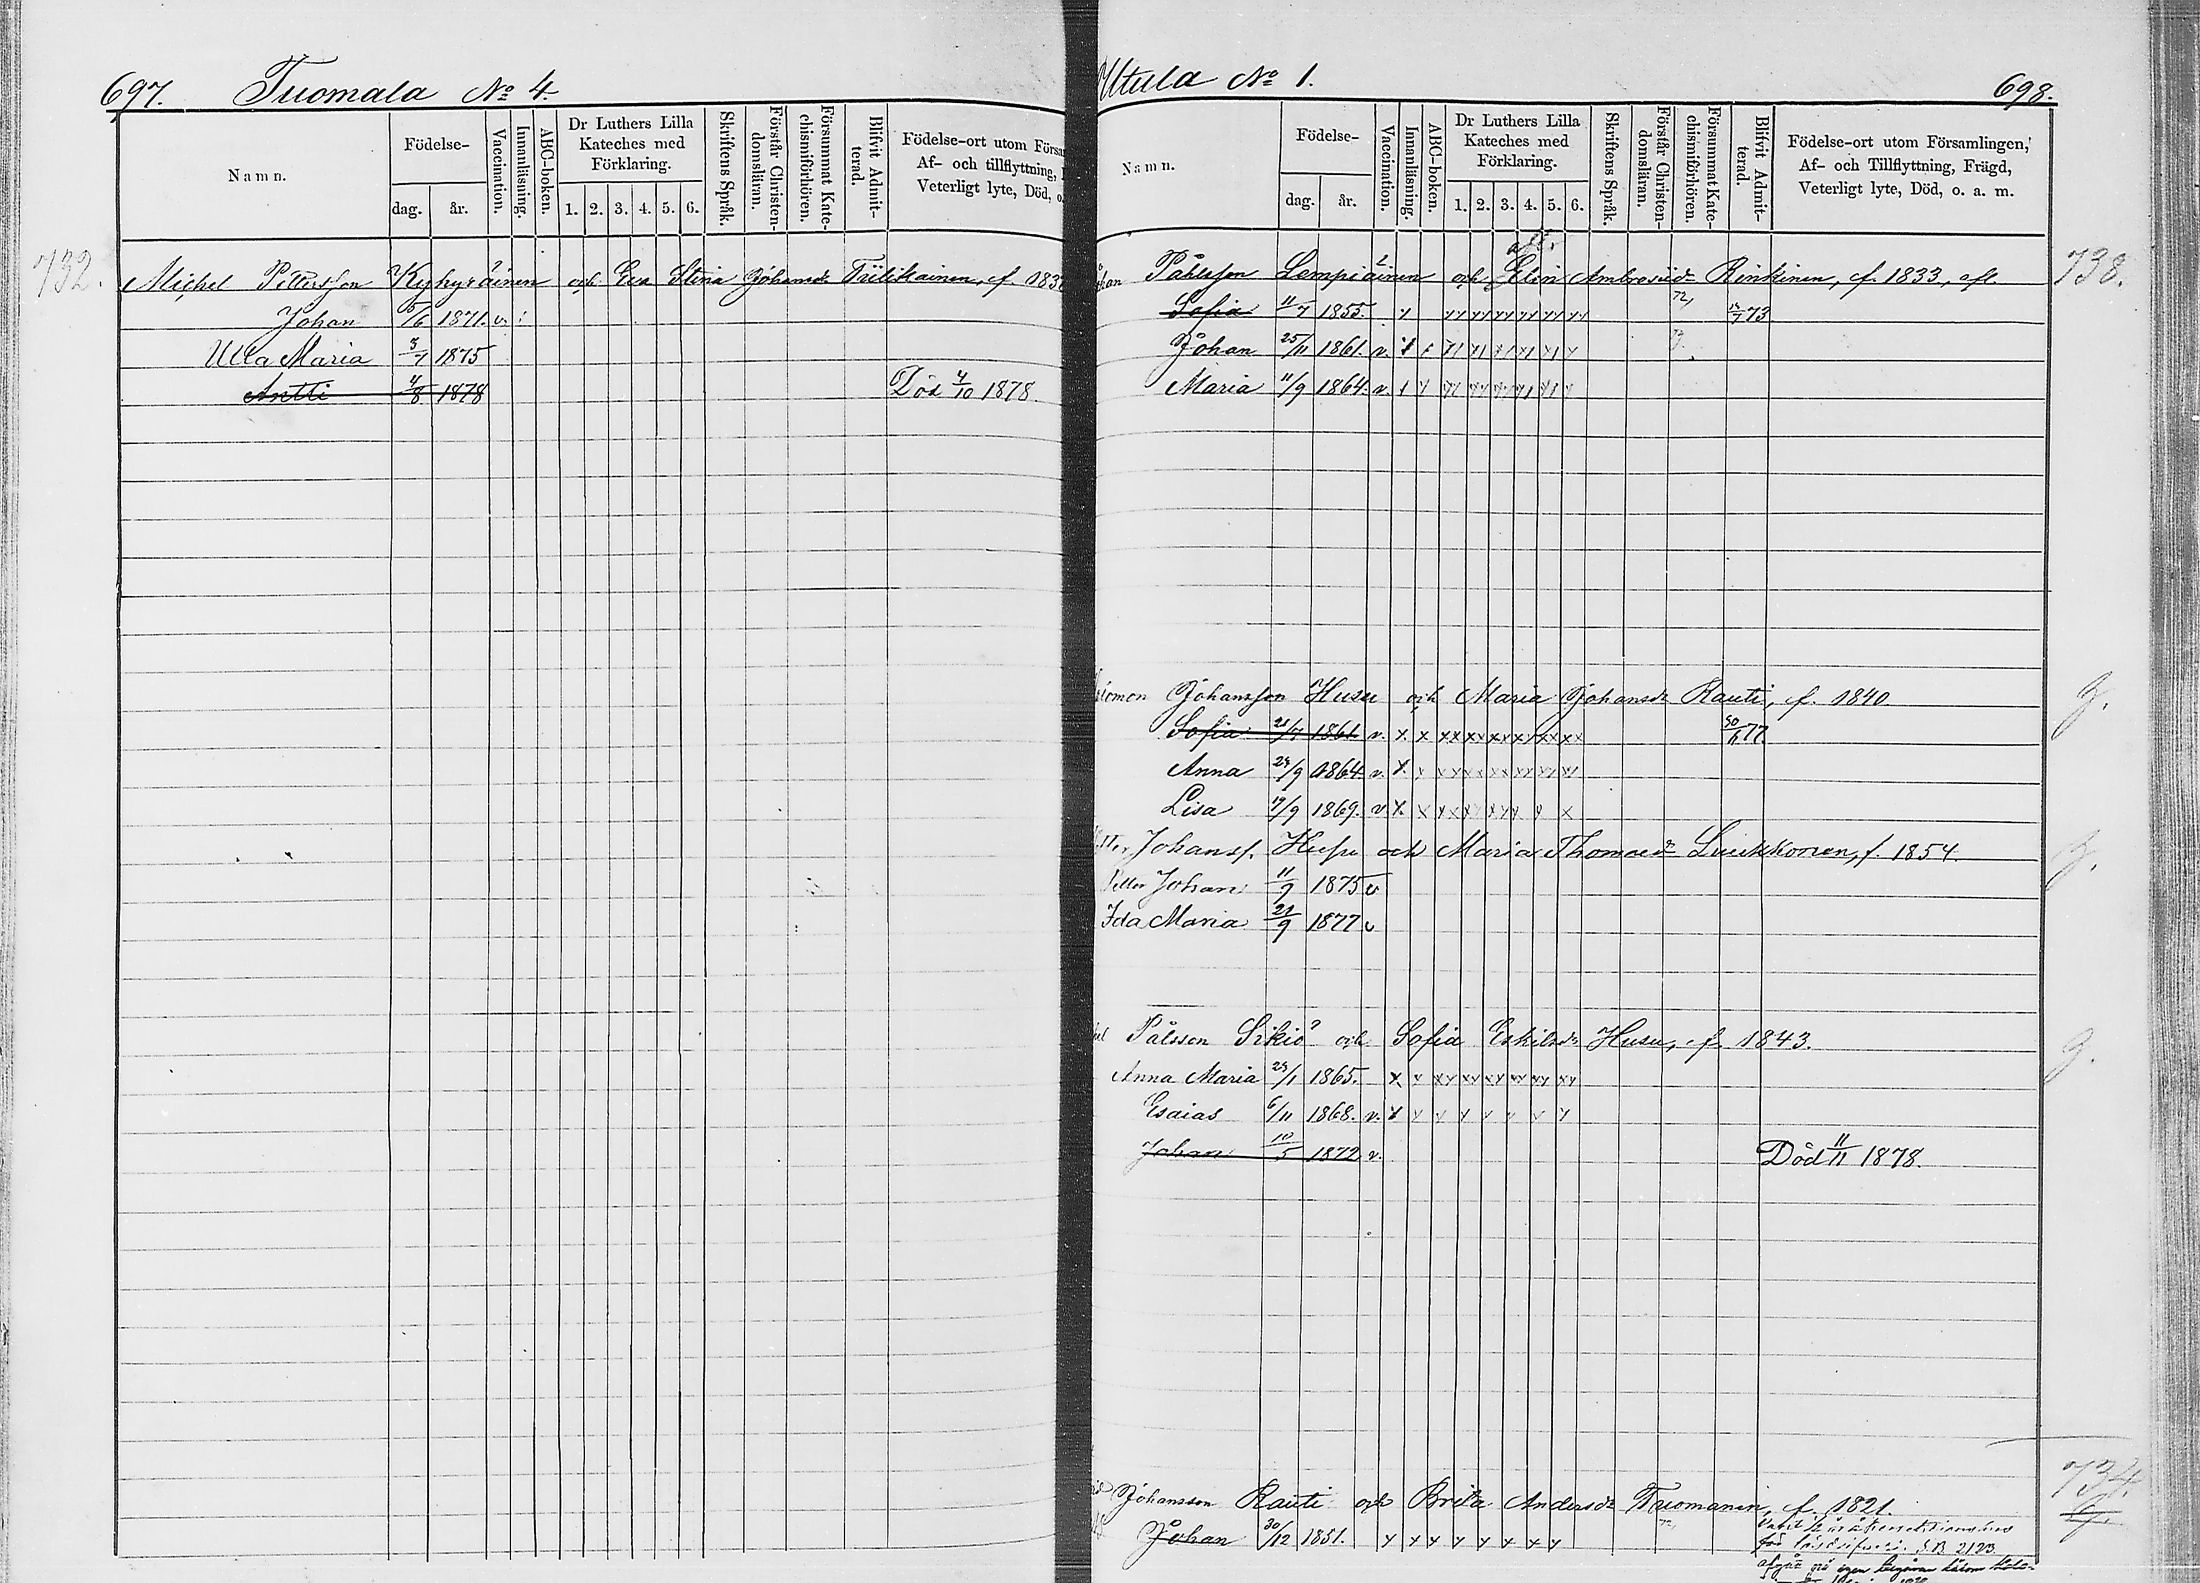 697. Tuomala No 4.
Namn.
Födelse-
dag.
år.
Vaccination.
Innanläsning.
ABC-boken.
Dr Luthers Lilla
Kateches med
Förklaring.
1. 2. 3. 4. 5. 6.
Skriftens Språk.
Förstår Christen-
domsläran.
Försummat Kate-
chismiförhören.
Blifvit Admit-
terad.
Födelse-ort utom
Af- och tillflyttning,
Veterligt lyte, Död,
732.
Michel Pettersson Kyhyräinen och Eva Stina Johansdr Tiilikainen, f.
Johan 5/6 1871. v.
Ulla Maria 3/1 1875
Antti 4/8 1878 Död 4/10 1878.
Utula No 1. 698.
Namn.
Födelse-
dag.
år.
Vaccination.
Innanläsning.
ABC-boken.
Dr Luthers Lilla
Kateches med
Förklaring.
1. 2. 3. 4. 5. 6.
Skriftens Språk.
Förstår Christen-
domsläran.
Försummat Kate-
chismiförhören.
Blifvit Admit-
terad.
Födelse-ort utom Församlingen,
Af- och Tillflyttning, Frägd,
Veterligt lyte, Död, o. a. m.
Påhlsson Lempiäinen och Elin Ambrosiidr Rinkinen, f. 1833, afl. 738.
Sofia 11/7 1855. 73
Johan 25/11 1861. v.
Maria 11/9 1864. v.
Johansson Husu och Maria Johansdr Rauti, f. 1840.
Sofia 21/7 1861 v. x x xx xx xx xx xx xx 30/6 77
Anna 29/9 1864. v. x
Lisa 19/9 1869. v. x
Johanss. Husu och Maria Thomasdr Luukkonen, f. 1854.
Petter Johan 11/9 1875 v
Ida Maria 21/9 1877 v
Pålsson Sikiö och Sofia Eskilsdr Husu, f. 1843.
Anna Maria 29/1 1865.
Esaias 6/11 1868. v.
Johan 10/5 1872 v. Död 11/11 1878.
734.
Johansson Rauti och Brita Andersdr Tuomanen, f. 1821.
Johan 30/12 1851.